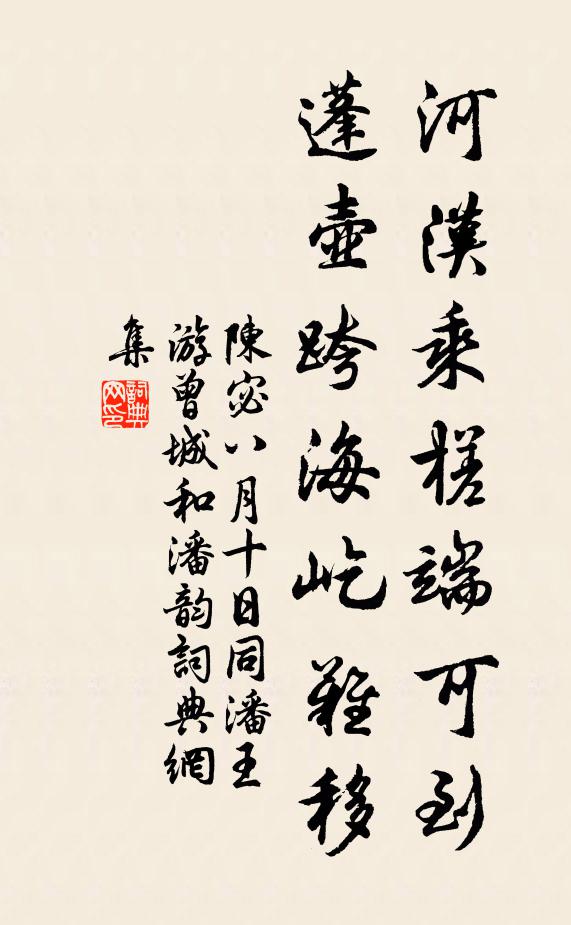 河漢乘槎端可到
蓬壺跨海屹難移
陳宓八月十日同潘王
游曾城和潘韵詞典網
集
詞典网印